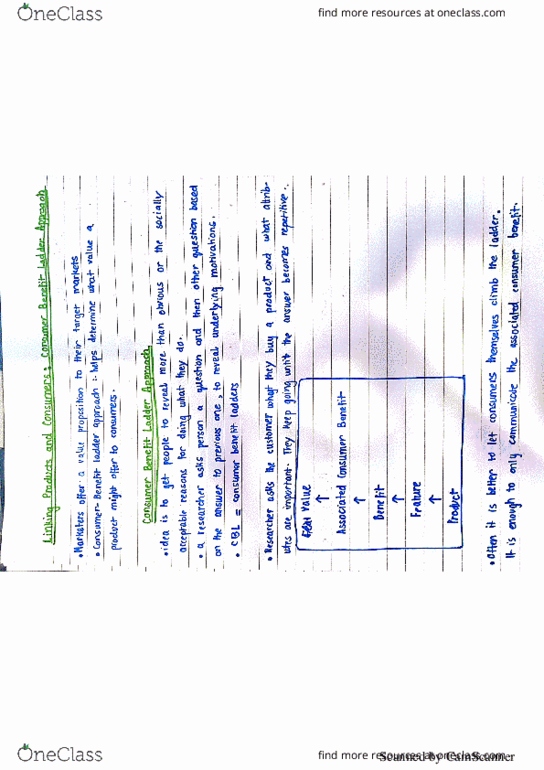 OneClass
find more resources at oneclass.com
Linking Products and Consumers: Consumer Benefit Ladder Approach
• Marketers offer a value proposition to their target markets
• Consumer-Benefit ladder approach : helps determine what value a
product might offer to consumers.
Consumer Benefit Ladder Approach
• idea is to get people to reveal more than obvious or the socially
acceptable reasons for doing what they do.
• a researcher asks person a question and then other question based
on the answer to previous one, to reveal underlying motivations.
• CBL = consumer benefit ladders
• Researcher asks the customer what they buy a product and what attrib-
utes are important. They keep going until the answer becomes repetitive.
Field Value
↑
Associated Consumer Benefit
↑
Benefit
↑
Feature
↑
Product
• Often it is better to let consumers themselves climb the ladder.
It is enough to only communicate the associated consumer benefit.
OneClass
find more resources at oneclass.com
Scanned by CamScanner